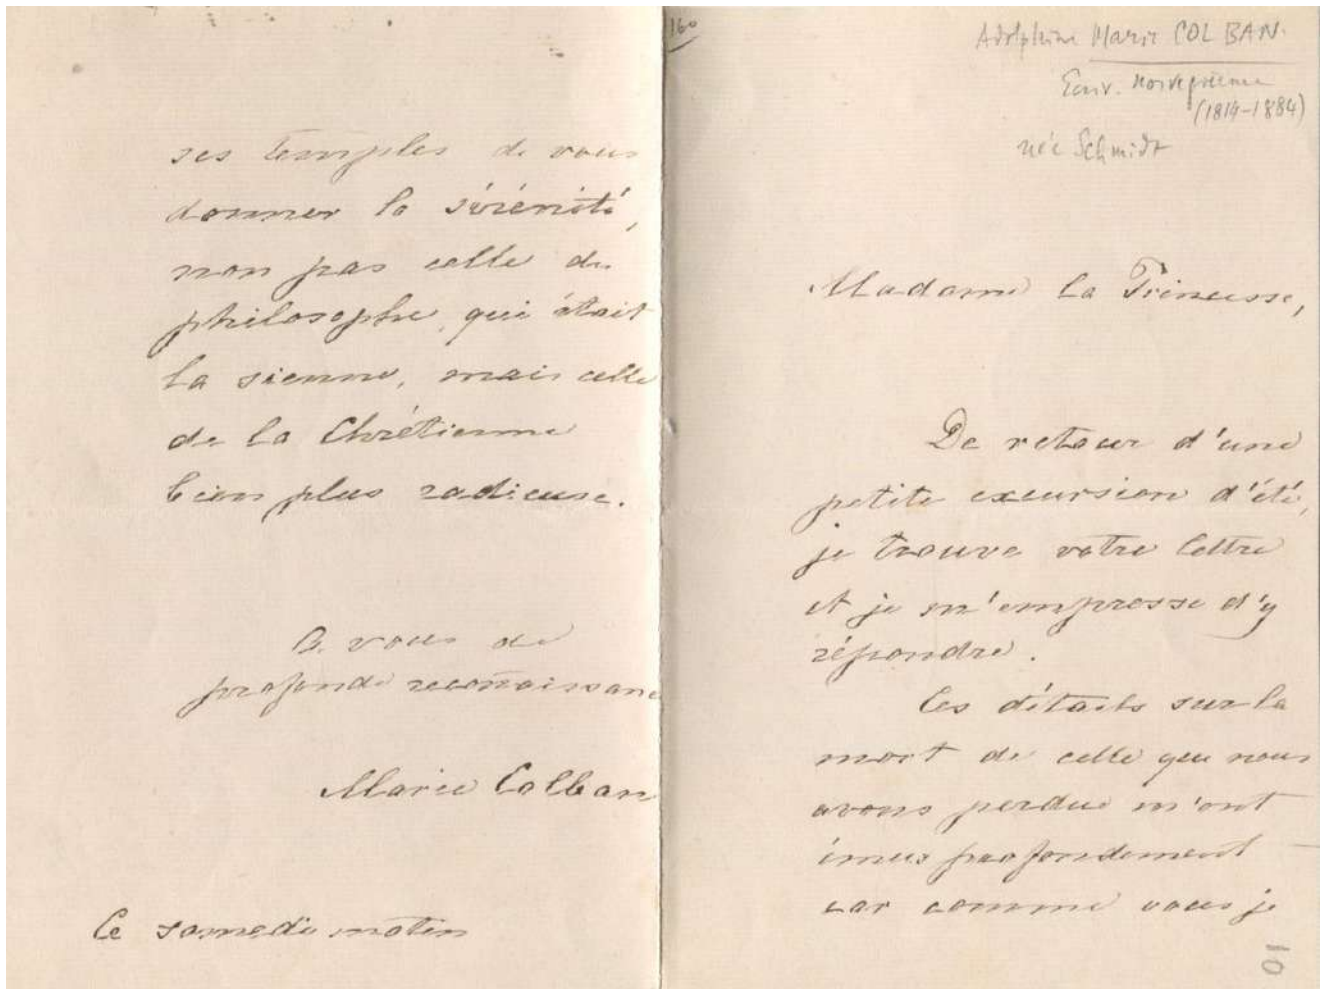 ses temples de vous
donner la sérénité,
non pas celle du
philosophe, qui était
la sienne, mais celle
de la Chrétienne
bien plus radieuse.
A vous de
profonde reconnaissance
Marie Colban
Ce samedi matin
160
Adolphine Marie COLBAN.
Ecriv. norvégienne
(1814-1884)
née Schmidt
Madame la Princesse,
De retour d'une
petite excursion d'été,
je trouve votre lettre
et je m'empresse d'y
répondre.
Ces détails sur la
mort de celle que nous
avons perdue m'ont
émus profondement
car comme vous je
10